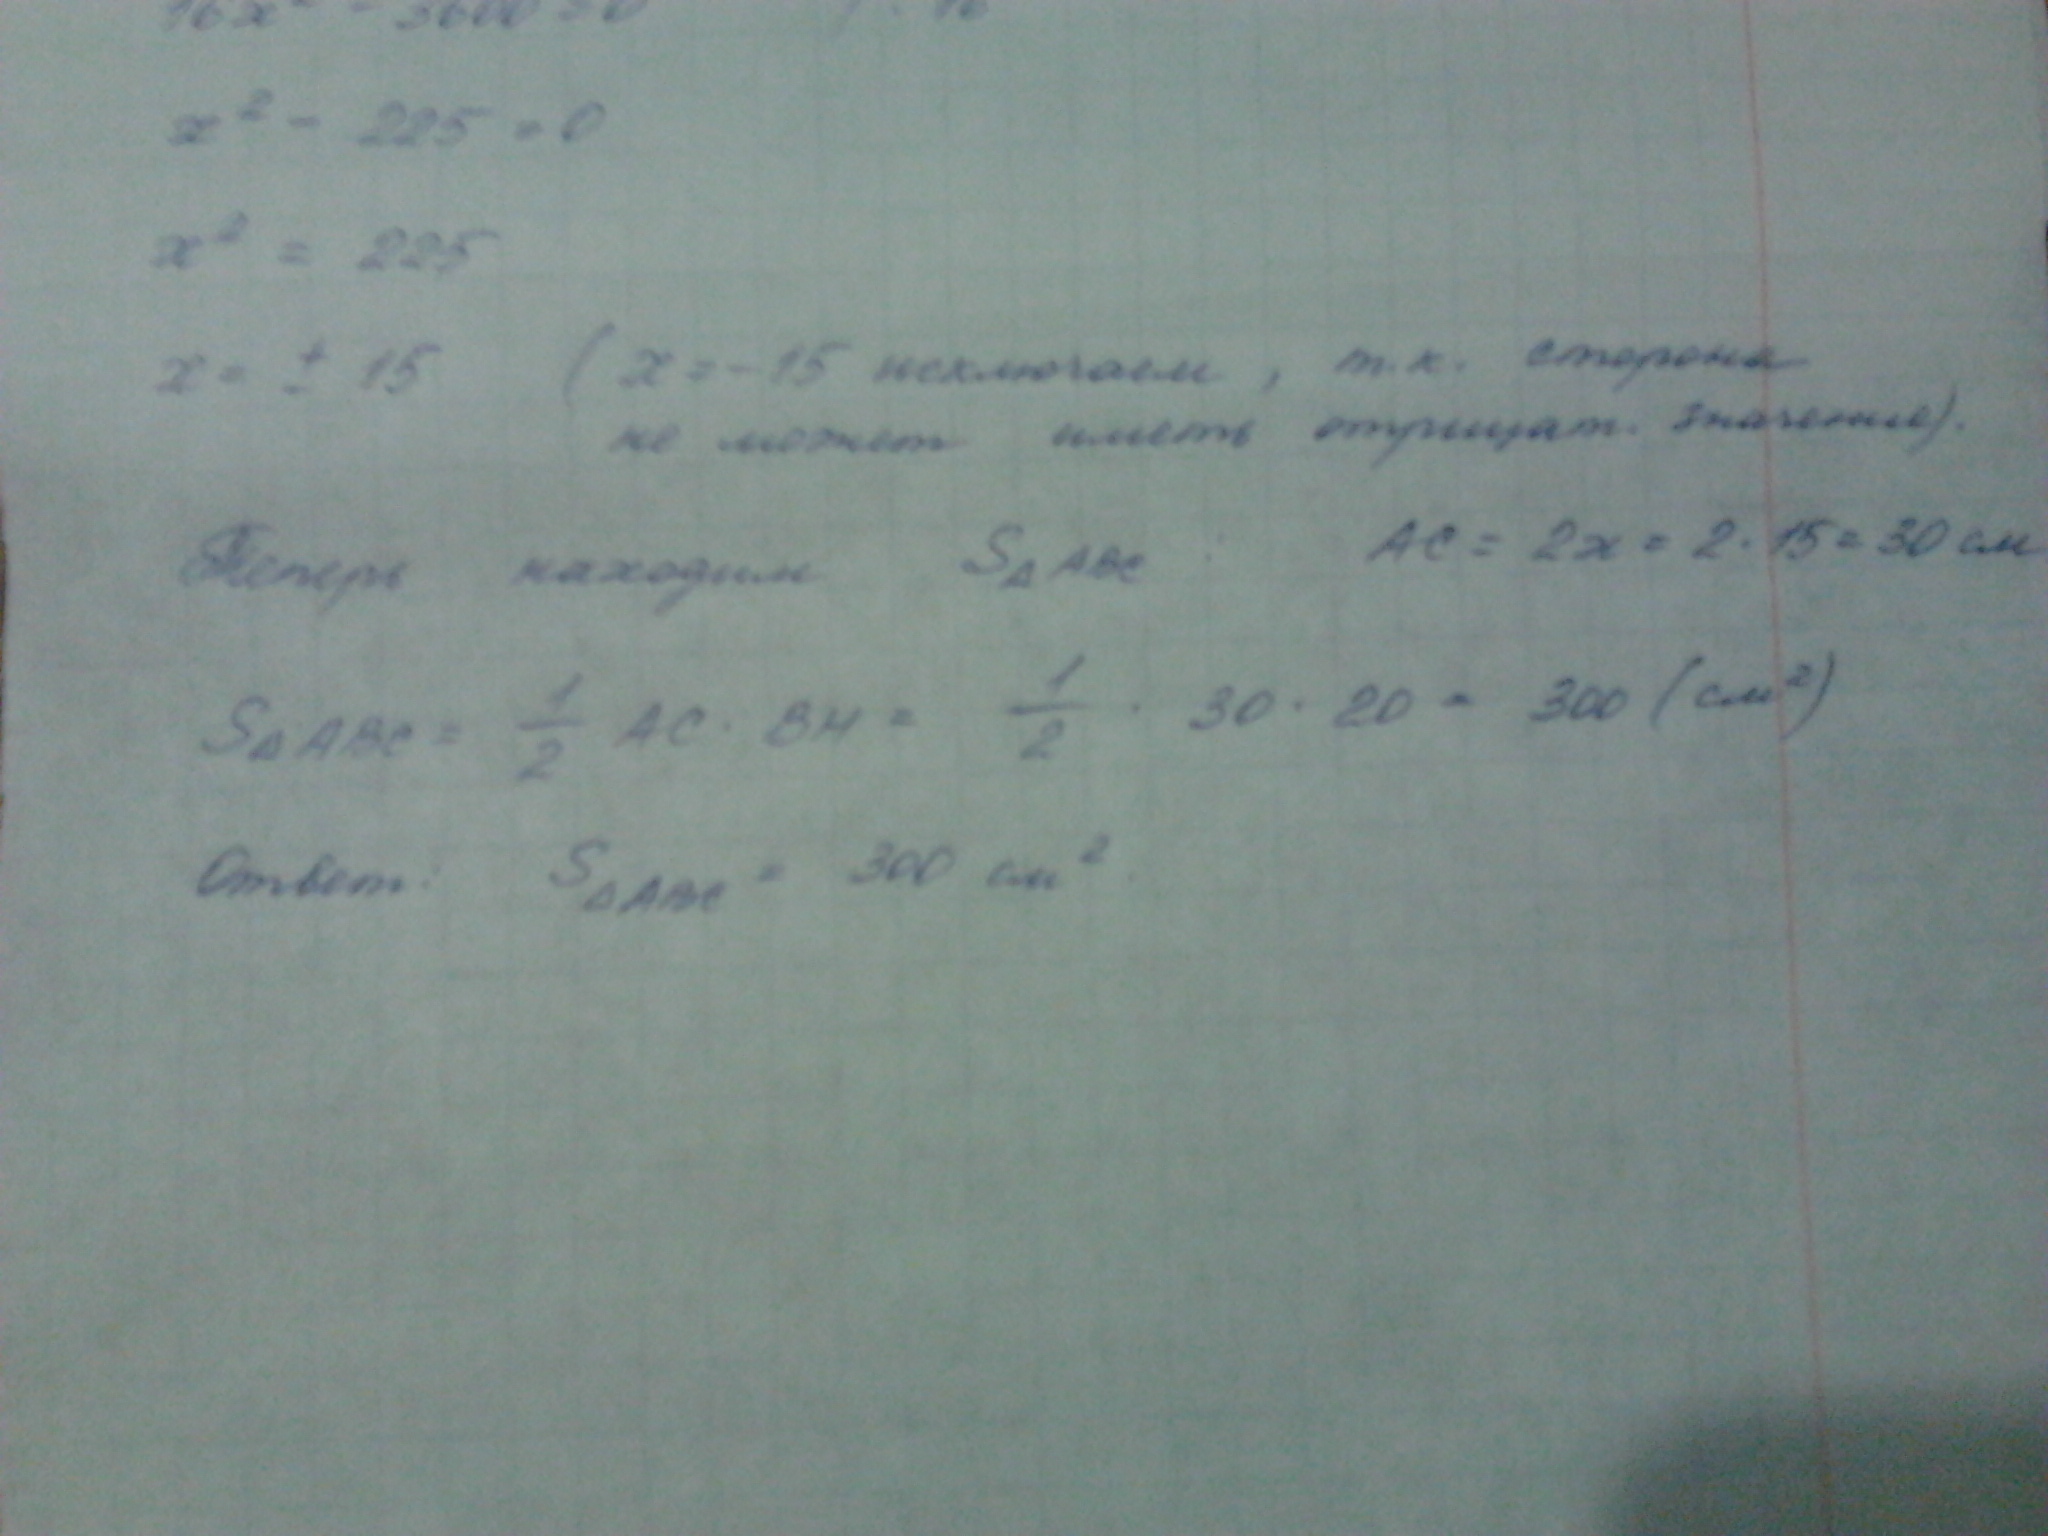 16x² - 3600 = 0 | : 16
x² - 225 = 0
x² = 225
x = ± 15 (x = -15 исключаем, т.к. сторона
не может иметь отрицат. значение).
Теперь находим S△ABC : AC = 2x = 2·15 = 30 см
S△ABC = 1/2 AC · BH = 1/2 · 30 · 20 = 300 (см²)
Ответ: S△ABC = 300 см².